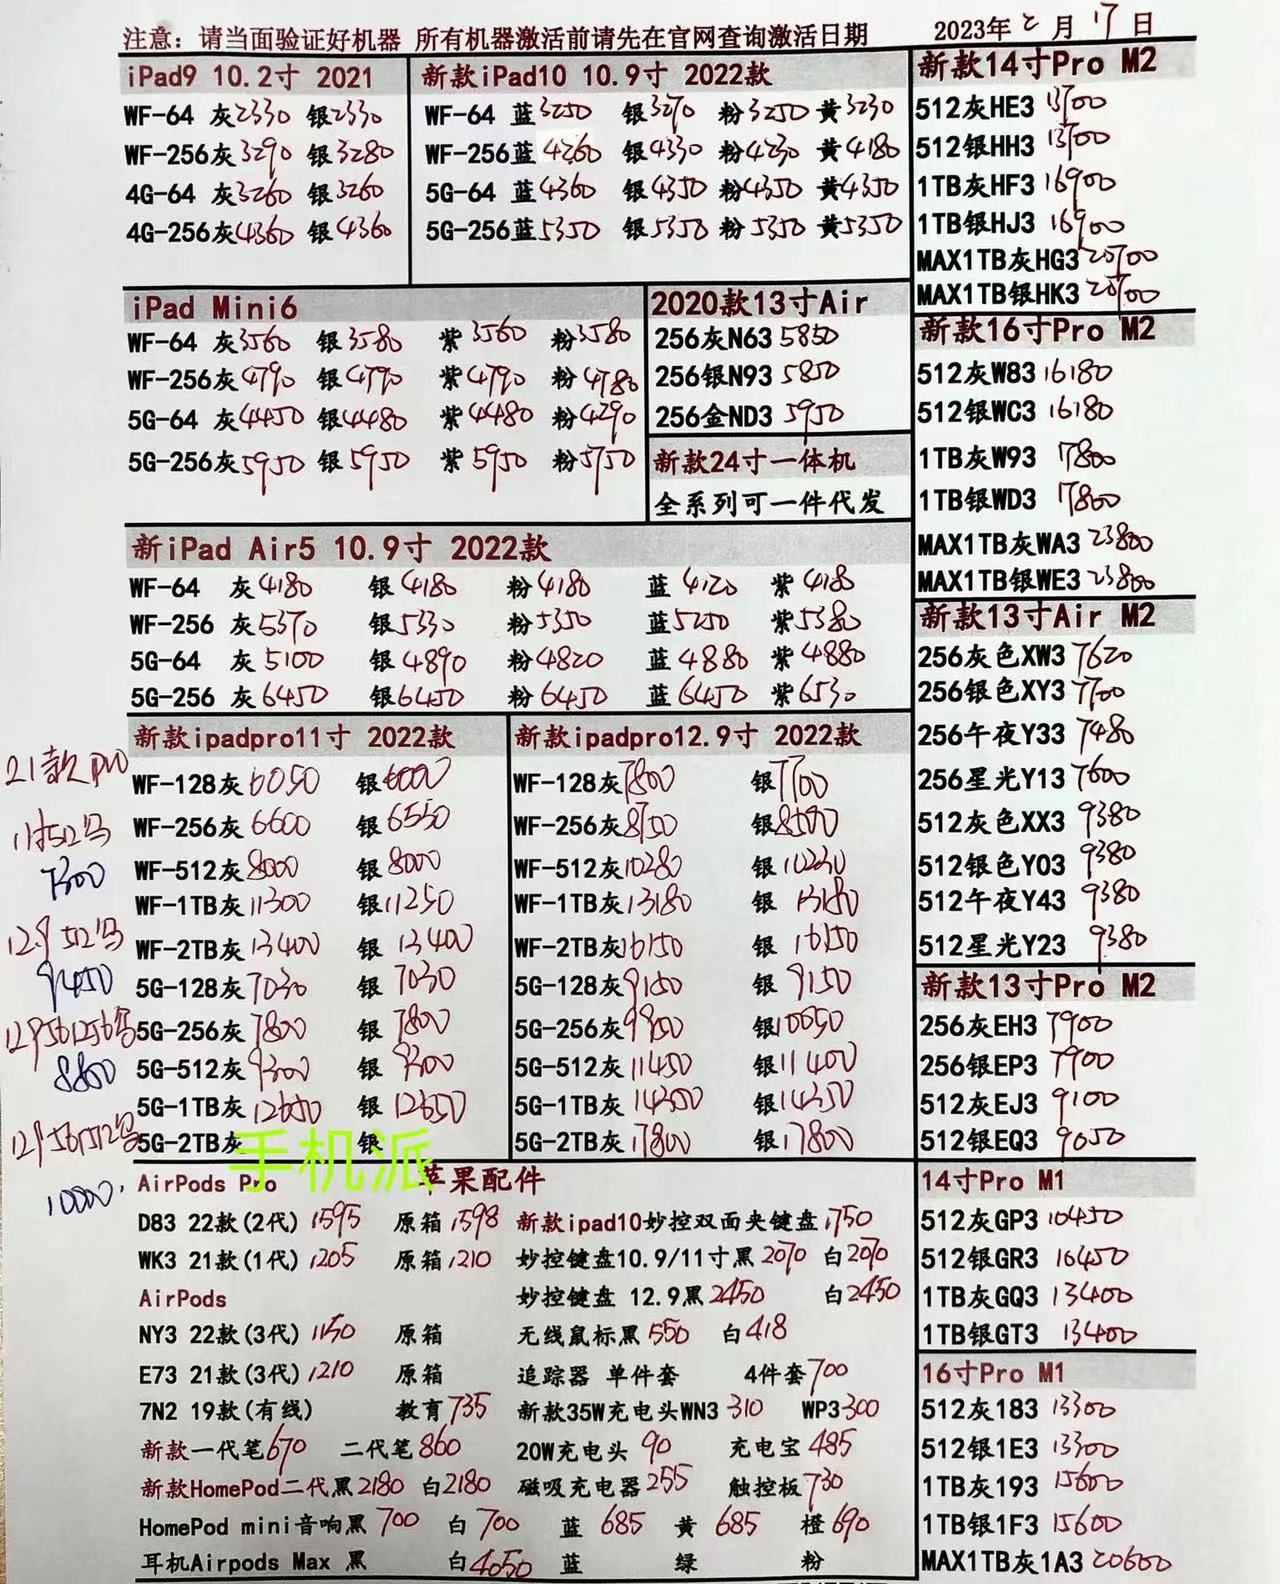 注意：请当面验证好机器 所有机器激活前请先在官网查询激活日期
2023年2月17日
iPad9 10.2寸 2021
WF-64 灰2330 银2330
WF-256灰3290 银3280
4G-64 灰3260 银3260
4G-256灰4360 银4360
新款iPad10 10.9寸 2022款
WF-64 蓝3250 银3270 粉3250 黄3230
WF-256蓝4260 银4330 粉4230 黄4180
5G-64 蓝4360 银4350 粉4350 黄4350
5G-256蓝5350 银5350 粉5350 黄5350
iPad Mini6
WF-64 灰3560 银3580 紫3560 粉3580
WF-256灰4790 银4790 紫4790 粉4780
5G-64 灰4450 银4480 紫4480 粉4290
5G-256灰5950 银5950 紫5950 粉5750
2020款13寸Air
256灰N63 5850
256银N93 5850
256金ND3 5950
新款24寸一体机
全系列可一件代发
新iPad Air5 10.9寸 2022款
WF-64 灰4180 银4180 粉4180 蓝4120 紫4180
WF-256 灰5370 银5330 粉5350 蓝5250 紫5380
5G-64 灰5100 银4890 粉4820 蓝4880 紫4880
5G-256 灰6450 银6450 粉6450 蓝6450 紫6530
21款pro
11寸512
7300
12.9 512
9450
12.9 5G 256
8800
12.9 5G 512
10000
新款ipadpro11寸 2022款
WF-128灰6050 银6000
WF-256灰6600 银6550
WF-512灰8000 银8000
WF-1TB灰11300 银11250
WF-2TB灰13400 银13400
5G-128灰7030 银7030
5G-256灰7800 银7800
5G-512灰9300 银9300
5G-1TB灰12650 银12650
5G-2TB灰 银
手机派
新款ipadpro12.9寸 2022款
WF-128灰7800 银7700
WF-256灰8700 银
WF-512灰10280 银10230
WF-1TB灰13180 银13180
WF-2TB灰16150 银16150
5G-128灰9150 银9150
5G-256灰 银10050
5G-512灰11450 银11400
5G-1TB灰14350 银14350
5G-2TB灰17800 银17800
AirPods Pro 苹果配件
D83 22款(2代) 1595 原箱1598
WK3 21款(1代) 1205 原箱1210
AirPods
NY3 22款(3代) 1150 原箱
E73 21款(3代) 1210 原箱
7N2 19款(有线) 教育735
新款一代笔670 二代笔860
新款HomePod二代黑2180 白2180
HomePod mini音响黑700 白700 蓝685 黄685 橙690
耳机Airpods Max 黑 白4050 蓝 绿 粉
新款ipad10妙控双面夹键盘1750
妙控键盘10.9/11寸黑2070 白2070
妙控键盘 12.9黑2450 白2450
无线鼠标黑550 白418
追踪器 单件套 4件套700
新款35W充电头WN3 310 WP3 300
20W充电头 90 充电宝485
磁吸充电器255 触控板730
新款14寸Pro M2
512灰HE3 13700
512银HH3 13700
1TB灰HF3 16900
1TB银HJ3 16900
MAX1TB灰HG3 20700
MAX1TB银HK3 20700
新款16寸Pro M2
512灰W83 16180
512银WC3 16180
1TB灰W93 17800
1TB银WD3 17800
MAX1TB灰WA3 23800
MAX1TB银WE3 23800
新款13寸Air M2
256灰色XW3 7620
256银色XY3 7700
256午夜Y33 7480
256星光Y13 7600
512灰色XX3 9380
512银色Y03 9380
512午夜Y43 9380
512星光Y23 9380
新款13寸Pro M2
256灰EH3 7900
256银EP3 7900
512灰EJ3 9100
512银EQ3 9050
14寸Pro M1
512灰GP3 10450
512银GR3 10450
1TB灰GQ3 13400
1TB银GT3 13400
16寸Pro M1
512灰183 13300
512银1E3 13300
1TB灰193 15600
1TB银1F3 15600
MAX1TB灰1A3 20600